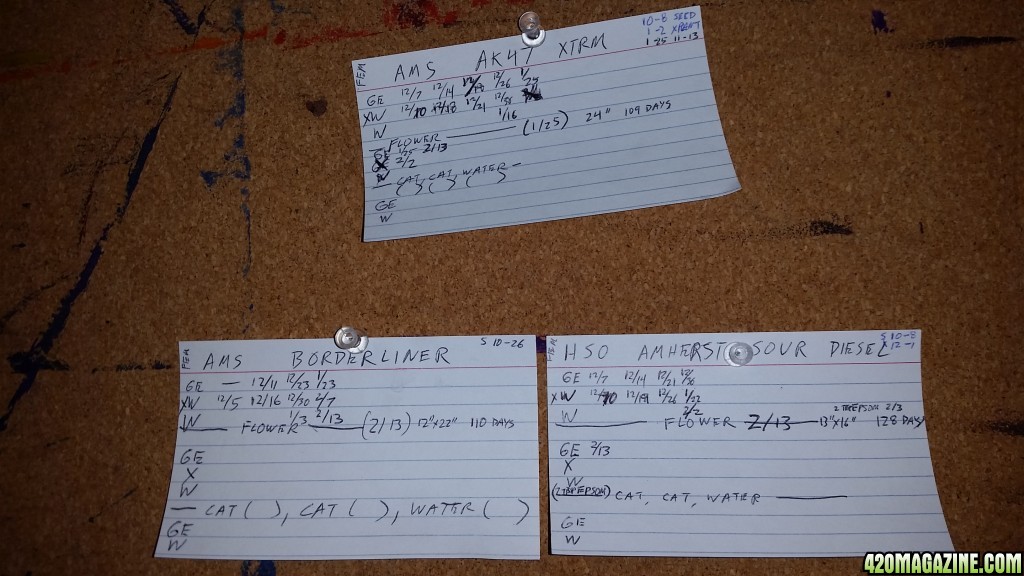 FEM
AMS AK47 XTRM
10-8 SEED
1-25 11-13
GE 12/7 12/14 12/26
XW 12/10 12/18 12/21
W 1/16
— FLOWER ——— (1/25) 24" 109 DAYS
2/13
2/2
— CAT, CAT, WATER —
( ) ( ) ( )
GE
W
FEM
AMS BORDERLINER
S 10-26
GE — 12/11 12/23 1/23
XW 12/5 12/16 12/30 2/7
W 1/3 2/13
—— FLOWER —— (2/13) 12"x22" 110 DAYS
GE
X
W
— CAT ( ), CAT ( ), WATER ( )
GE
W
FEM
HSO AMHERST SOUR DIESEL
S 10-8
12-1
GE 12/7 12/14 12/21 12/30
XW 12/10 12/26
W 2/2
2 TBSP EPSOM 2/3
—— FLOWER 2/13 13"x16" 128 DAYS
GE 2/13
X
W
CAT, CAT, WATER ——
GE
W
420MAGAZINE.COM